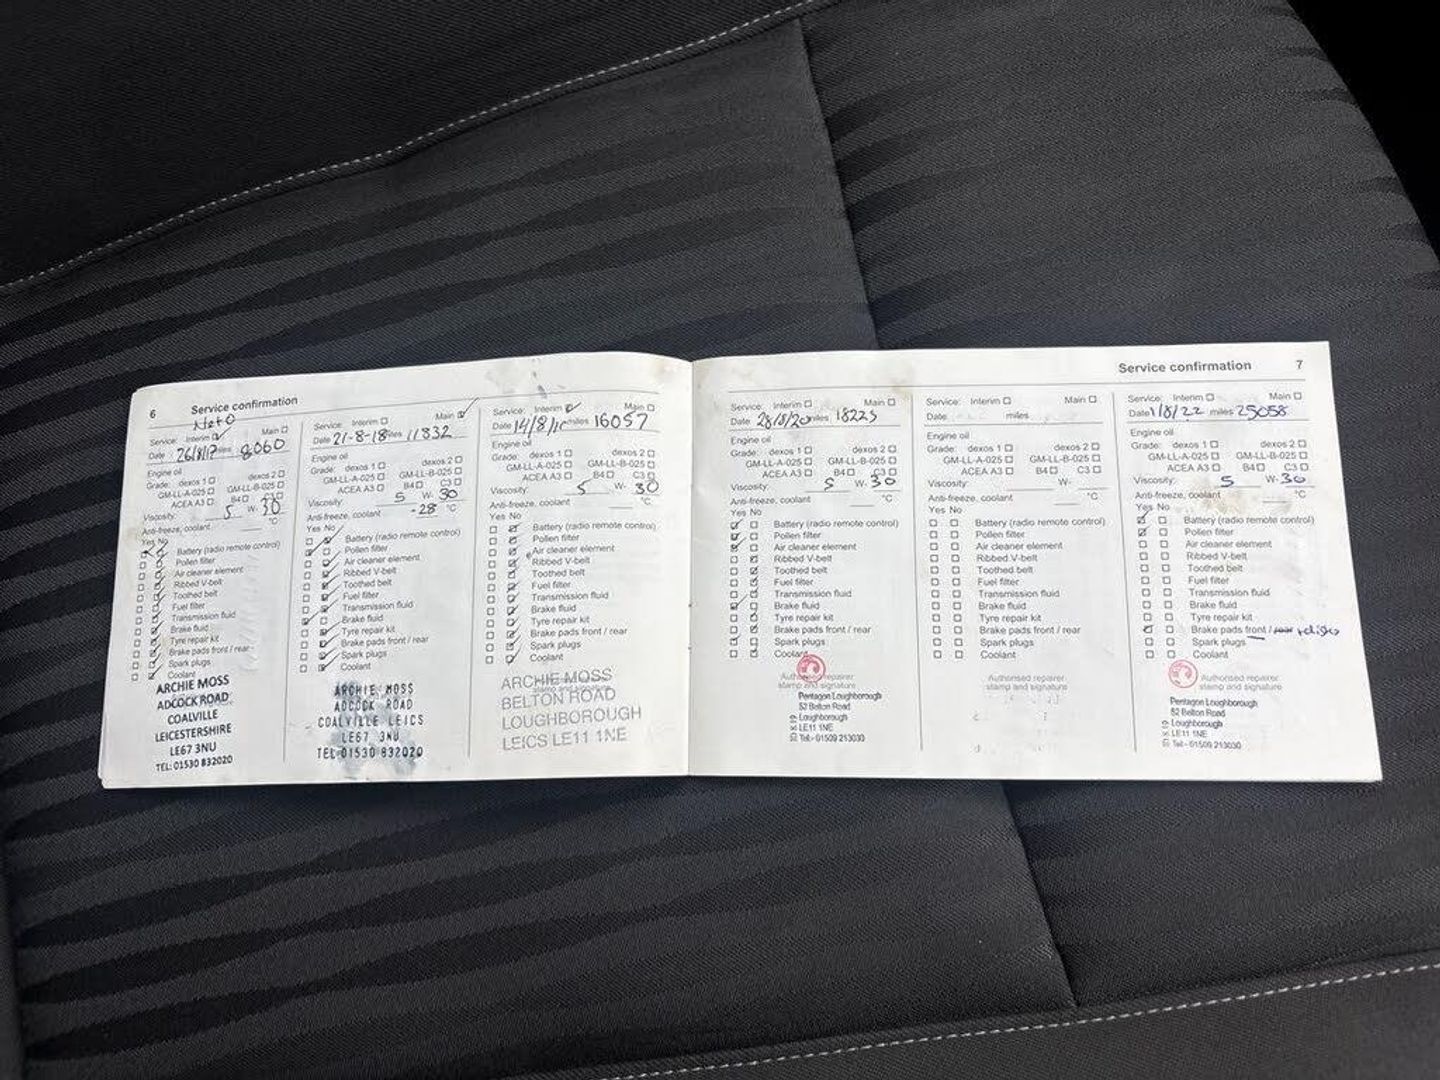 6 Service confirmation
Service: Interim Main
Date 26/8/17 miles 8060
Engine oil
Grade: dexos 1 dexos 2
GM-LL-A-025 GM-LL-B-025
ACEA A3 B4 C3
Viscosity: 5 W- 30
Anti-freeze, coolant °C
Yes No
Battery (radio remote control)
Pollen filter
Air cleaner element
Ribbed V-belt
Toothed belt
Fuel filter
Transmission fluid
Brake fluid
Tyre repair kit
Brake pads front / rear
Spark plugs
Coolant
ARCHIE MOSS
ADCOCK ROAD
COALVILLE
LEICESTERSHIRE
LE67 3NU
TEL: 01530 832020
Service: Interim Main
Date 21-8-18 miles 11832
Engine oil
Grade: dexos 1 dexos 2
GM-LL-A-025 GM-LL-B-025
ACEA A3 B4 C3
Viscosity: 5 W- 30
Anti-freeze, coolant -28 °C
Yes No
Battery (radio remote control)
Pollen filter
Air cleaner element
Ribbed V-belt
Toothed belt
Fuel filter
Transmission fluid
Brake fluid
Tyre repair kit
Brake pads front / rear
Spark plugs
Coolant
ARCHIE MOSS
ADCOCK ROAD
COALVILLE LEICS
LE67 3NU
TEL:01530 832020
Service: Interim Main
Date 14/8/ miles 16057
Engine oil
Grade: dexos 1 dexos 2
GM-LL-A-025 GM-LL-B-025
ACEA A3 B4 C3
Viscosity: 5 W- 30
Anti-freeze, coolant °C
Yes No
Battery (radio remote control)
Pollen filter
Air cleaner element
Ribbed V-belt
Toothed belt
Fuel filter
Transmission fluid
Brake fluid
Tyre repair kit
Brake pads front / rear
Spark plugs
Coolant
ARCHIE MOSS
BELTON ROAD
LOUGHBOROUGH
LEICS LE11 1NE
Service confirmation 7
Service: Interim Main
Date 28/8/20 miles 18225
Engine oil
Grade: dexos 1 dexos 2
GM-LL-A-025 GM-LL-B-025
ACEA A3 B4 C3
Viscosity: 5 W- 30
Anti-freeze, coolant °C
Yes No
Battery (radio remote control)
Pollen filter
Air cleaner element
Ribbed V-belt
Toothed belt
Fuel filter
Transmission fluid
Brake fluid
Tyre repair kit
Brake pads front / rear
Spark plugs
Coolant
Authorised repairer
stamp and signature
Pentagon Loughborough
52 Belton Road
Loughborough
LE11 1NE
Tel:- 01509 213030
Service: Interim Main
Date miles
Engine oil
Grade: dexos 1 dexos 2
GM-LL-A-025 GM-LL-B-025
ACEA A3 B4 C3
Viscosity: W-
Anti-freeze, coolant °C
Yes No
Battery (radio remote control)
Pollen filter
Air cleaner element
Ribbed V-belt
Toothed belt
Fuel filter
Transmission fluid
Brake fluid
Tyre repair kit
Brake pads front / rear
Spark plugs
Coolant
Authorised repairer
stamp and signature
Service: Interim Main
Date 1/8/22 miles 25058
Engine oil
Grade: dexos 1 dexos 2
GM-LL-A-025 GM-LL-B-025
ACEA A3 B4 C3
Viscosity: 5 W- 30
Anti-freeze, coolant °C
Yes No
Battery (radio remote control)
Pollen filter
Air cleaner element
Ribbed V-belt
Toothed belt
Fuel filter
Transmission fluid
Brake fluid
Tyre repair kit
Brake pads front / rear +discs
Spark plugs
Coolant
Authorised repairer
stamp and signature
Pentagon Loughborough
52 Belton Road
Loughborough
LE11 1NE
Tel:- 01509 213030